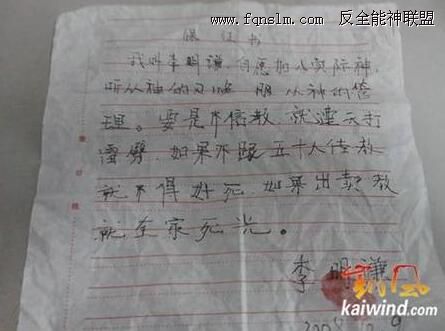 www.fqnslm.com 反全能神联盟
保证书
我叫李明谦,自愿加入实际神,
听从神的 服从神的管
理。要是不信教,就遭天打
雷劈,如果不跟五十人传教
就不得好死,如果出卖教
就全家死光。
李明谦
凯风
kaiwind.com